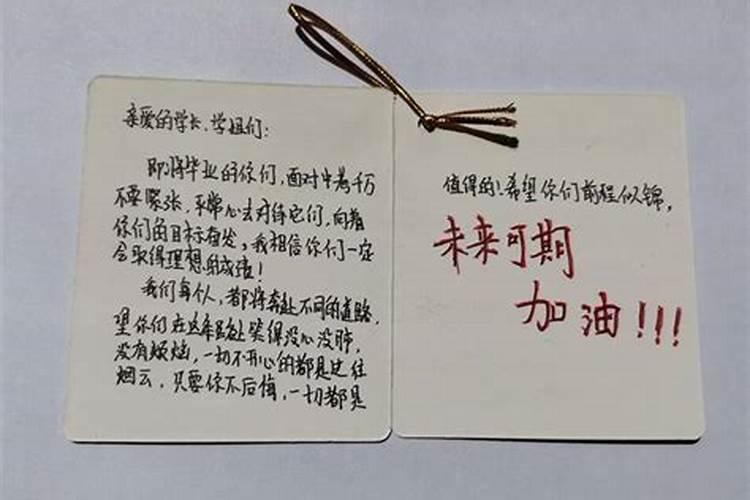 亲爱的学长、学姐们:
即将毕业的你们,面对中考千万
不要紧张,平常心去对待它们,向着
你们的目标奋发,我相信你们一定
会取得理想的成绩!
我们每个人,都将奔赴不同的道路,
望你们在这年龄让笑得没心没肺,
没有烦恼,一切不开心的都是过往
烟云,只要你不后悔,一切都是
值得的!希望你们前程似锦,
未来可期
加油!!!